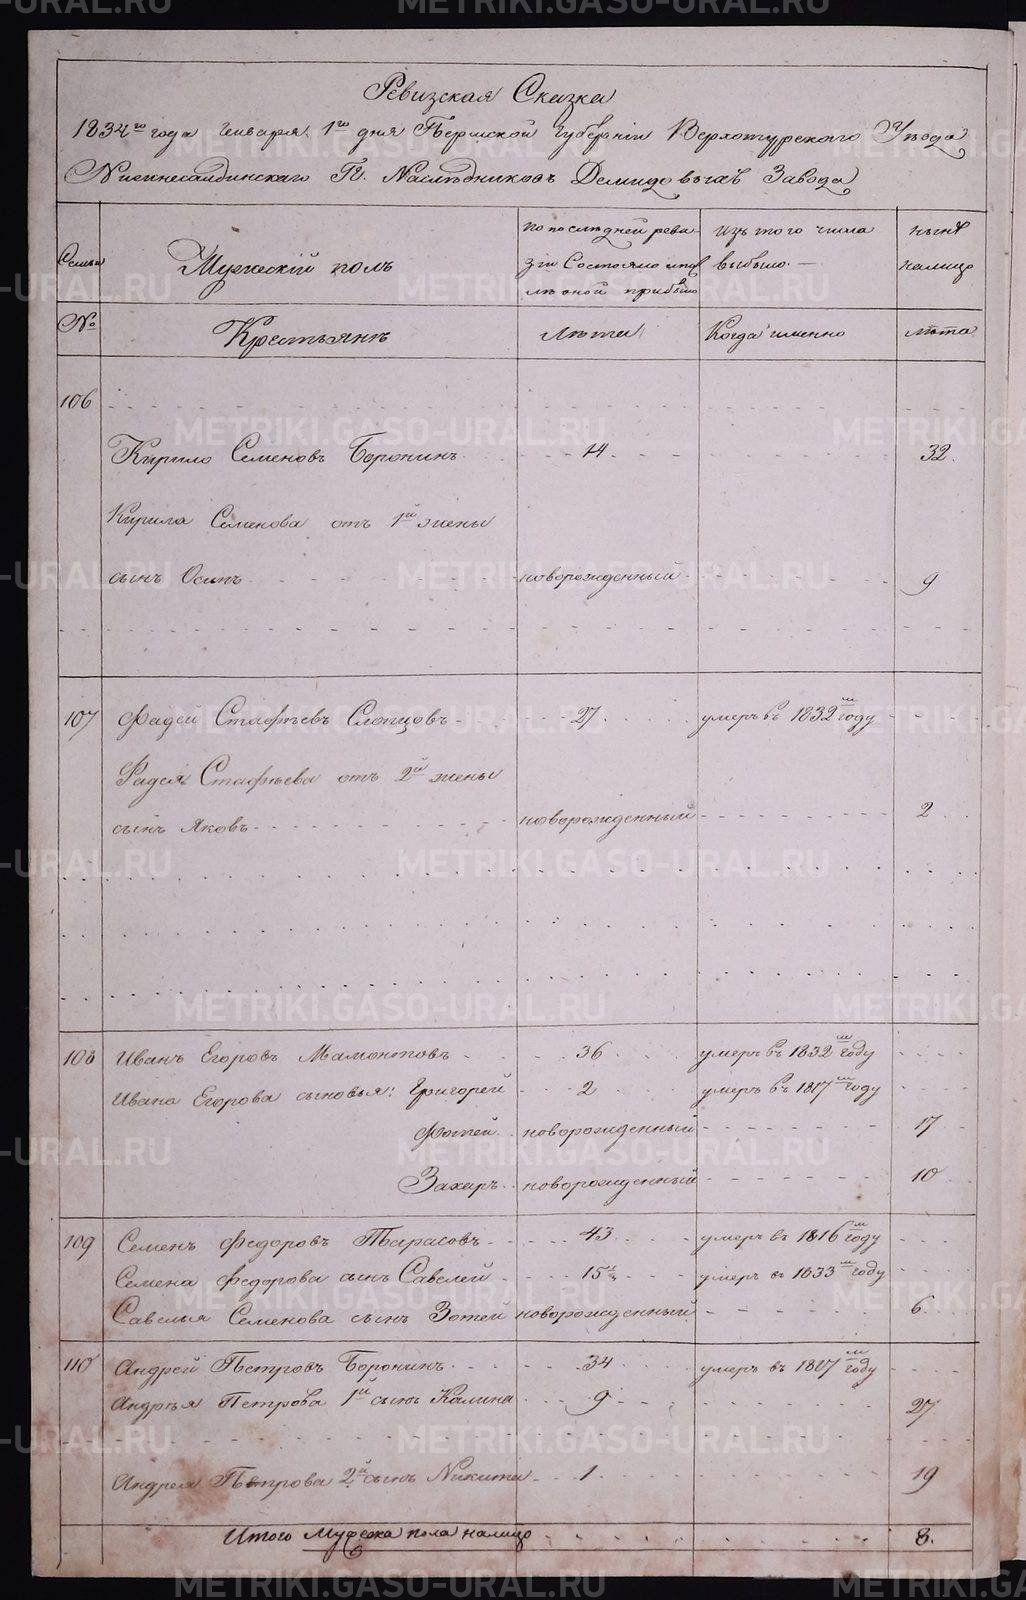 Ревизская Сказка
1834го года Генваря 1го дня Пермской Губерніи Верхотурскаго Уезда
Нижнесалдинскаго Гг. Наследниковъ Демидовыхъ Завода
Семьи Мужескій полъ по последней ревизіи Состояло и после оной прибыло Изъ того числа выбыло ныне налицо
№ Крестьяне Лета Когда именно лета
106
Кирило Семеновъ Воронинъ 14 32.
Кирила Семенова отъ 1й жены
сынъ Осипъ новорожденный 9
107 Фадей Стафеевъ Слопцовъ 27 умеръ въ 1832м году
Фадея Стафеева отъ 2й жены
сынъ Яковъ новорожденный 2
108 Иванъ Егоровъ Мамонтовъ 36 умеръ въ 1832м году
Ивана Егорова сыновья: Григорей 2 умеръ въ 1817м году
Фотей новорожденный 17
Захаръ новорожденный 10
109 Семенъ Федоровъ Тарасовъ 43 умеръ въ 1816м году
Семена Федорова сынъ Савелей 15½ умеръ въ 1833м году
Савелья Семенова сынъ Зотей новорожденный 6
110 Андрей Петровъ Воронинъ 34 умеръ въ 1827м году
Андрея Петрова 1й сынъ Калина 9 27
Андрея Петрова 2й сынъ Никита 1 19
Итого Мужеска пола налицо 8.
METRIKI.GASO-URAL.RU